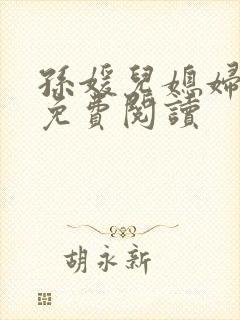 孫媛兒媳婦
免費閱讀
胡永新